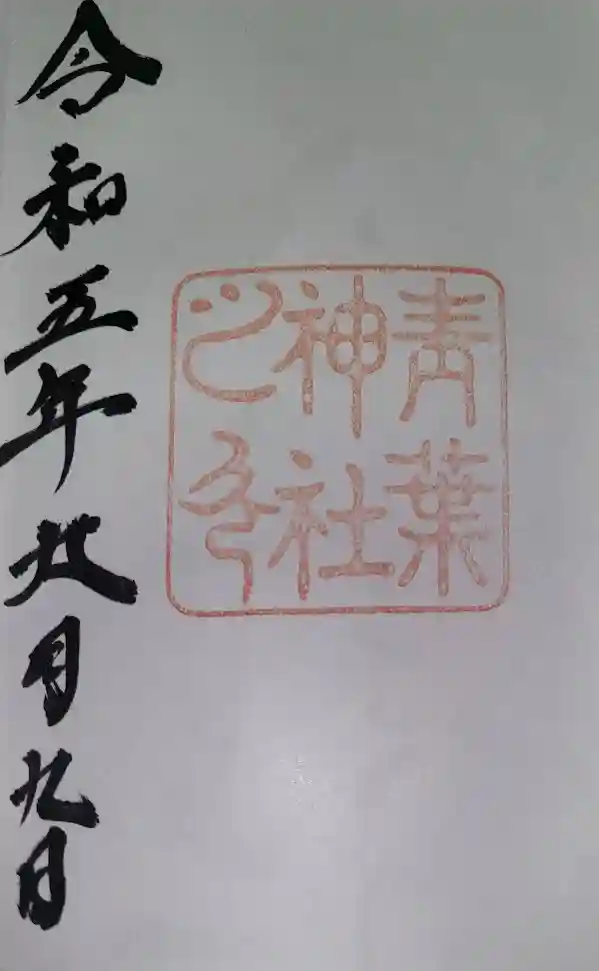 青葉
神社
之印
令和五年九月九日